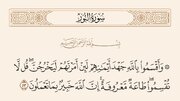 سورة النور
بسم الله الرحمن الرحيم
وَأَقْسَمُوا۟ بِٱللَّهِ جَهْدَ أَيْمَـٰنِهِمْ لَئِنْ أَمَرْتَهُمْ لَيَخْرُجُنَّ ۖ قُل لَّا
تُقْسِمُوا۟ ۖ طَاعَةٌ مَّعْرُوفَةٌ ۚ إِنَّ ٱللَّهَ خَبِيرٌۢ بِمَا تَعْمَلُونَ